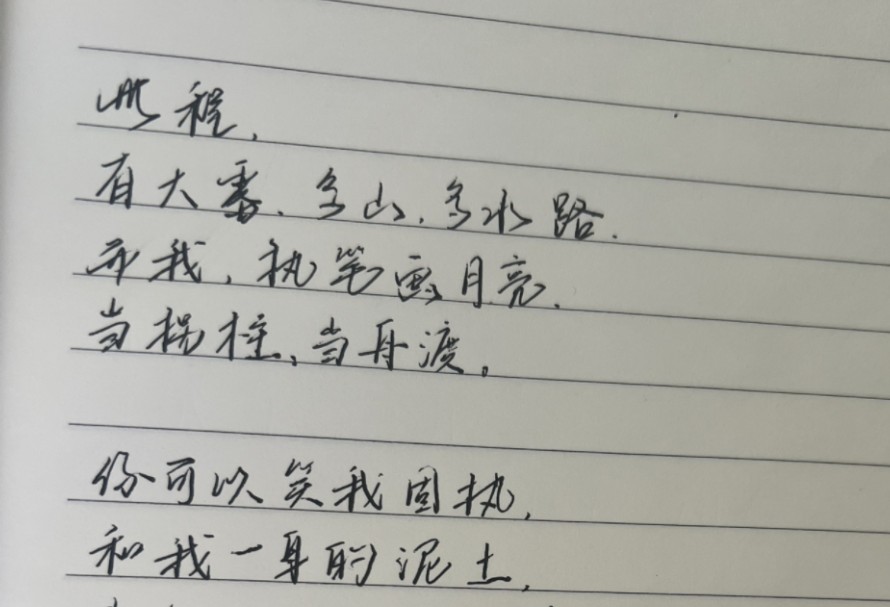 此程，
有大雾、多山、多水路．
而我，执笔画月亮．
当拐杖、当舟渡。
你可以笑我固执，
和我一身的泥土，